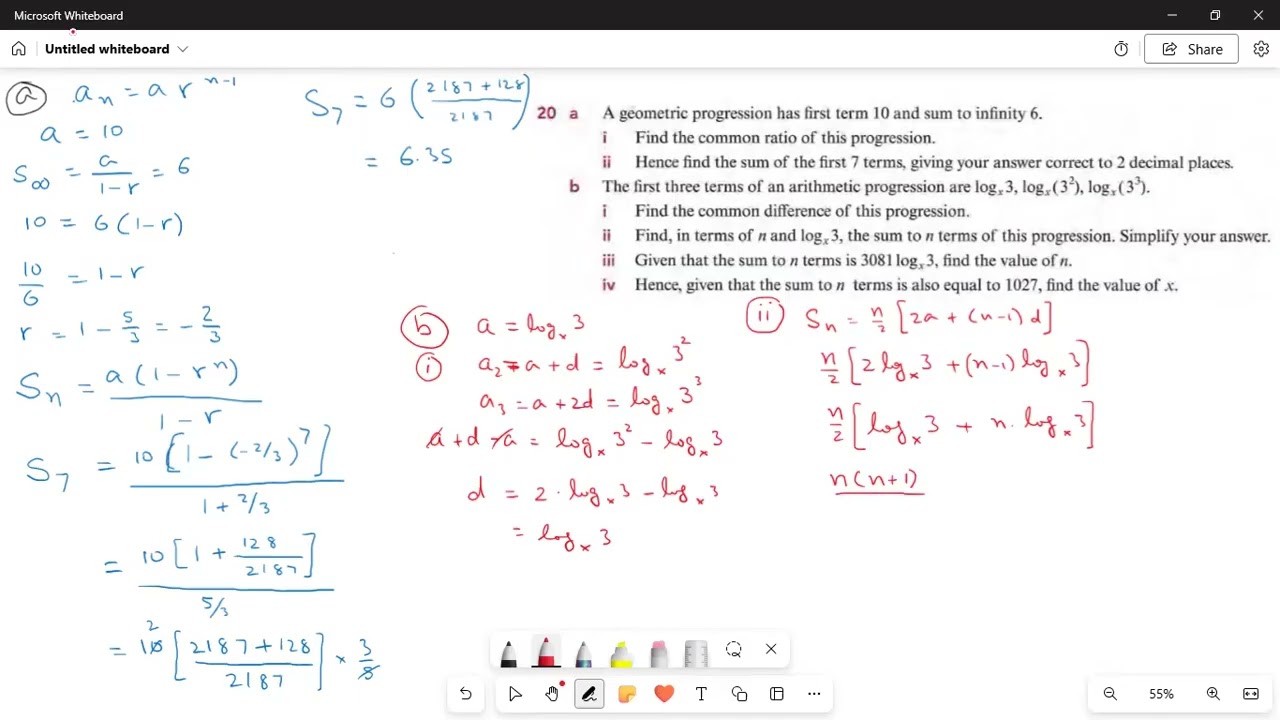 Microsoft Whiteboard
Untitled whiteboard
Share
ⓐ aₙ = a r^(n-1)
a = 10
S∞ = a/(1-r) = 6
10 = 6(1-r)
10/6 = 1-r
r = 1 - 5/3 = -2/3
Sₙ = a(1-rⁿ)/(1-r)
S₇ = 10[1-(-2/3)⁷]/(1+2/3)
= 10[1 + 128/2187]/(5/3)
= 10 2 [(2187+128)/2187] × 3/5
S₇ = 6((2187+128)/2187)
= 6.35
20 a A geometric progression has first term 10 and sum to infinity 6.
i Find the common ratio of this progression.
ii Hence find the sum of the first 7 terms, giving your answer correct to 2 decimal places.
b The first three terms of an arithmetic progression are logₓ3, logₓ(3²), logₓ(3³).
i Find the common difference of this progression.
ii Find, in terms of n and logₓ3, the sum to n terms of this progression. Simplify your answer.
iii Given that the sum to n terms is 3081 logₓ3, find the value of n.
iv Hence, given that the sum to n terms is also equal to 1027, find the value of x.
ⓑ a = logₓ3
ⓘ a₂ = a + d = logₓ3²
a₃ = a + 2d = logₓ3³
a + d - a = logₓ3² - logₓ3
d = 2·logₓ3 - logₓ3
= logₓ3
ii Sₙ = n/2 [2a + (n-1)d]
n/2 [2 logₓ3 + (n-1) logₓ3]
n/2 [logₓ3 + n·logₓ3]
n(n+1)
55%